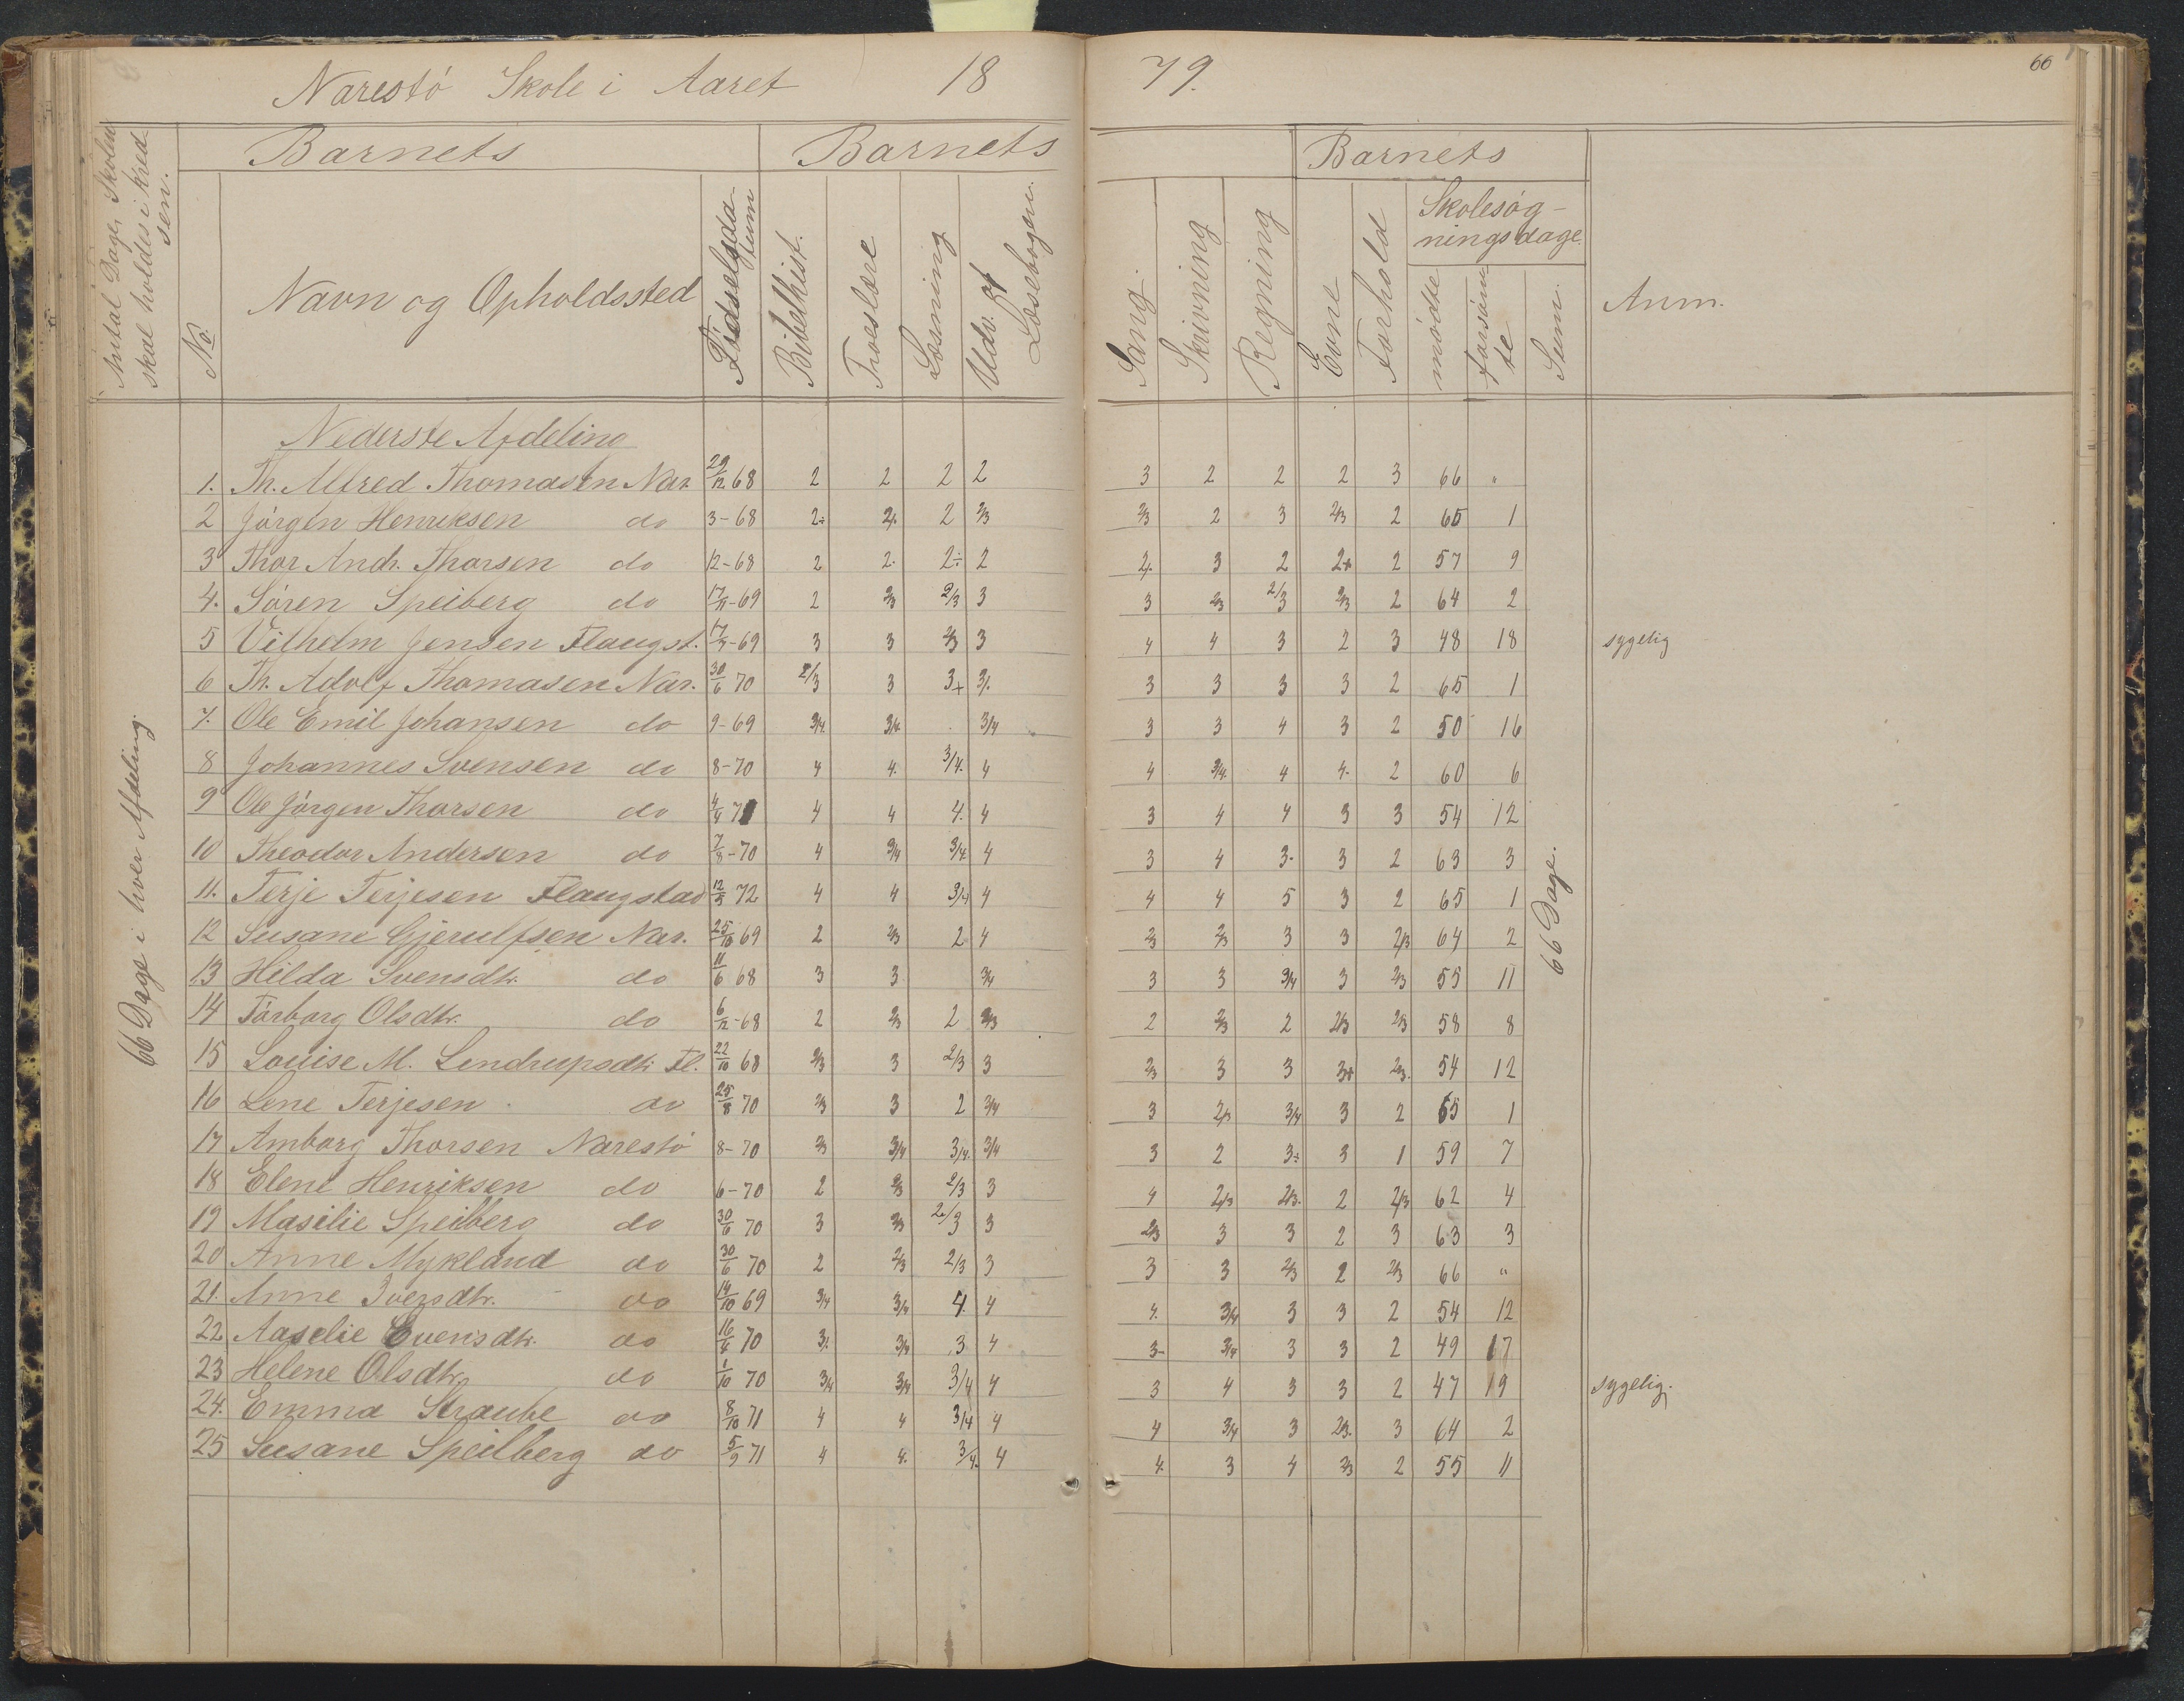 Narestö Skole i Aaret 18 79.
66
Antal Dage, Skolen skal holdes i Kredsen.
Barnets Barnets Barnets
No. Navn og Opholdssted Födselsdatum Bibelhist. Troeslære Læsning Udv. af Læsebogen. Sang. Skrivning Regning Evne Forhold Skolesög-ningsdage. mödte forsömte Sum. Anm.
66 Dage i hver Afdeling.
Nederste Afdeling
1. Th. Alfred Thomasen Nar. 29/12 68 2 2 2 2 3 2 2 2 3 66 "
2 Jörgen Henriksen do 3-68 2÷ 2/. 2 2/3 2/3 2 3 2/3 2 65 1
3 Thor Andr. Thorsen do 12-68 2 2. 2÷ 2 2/. 3 2 2+ 2 57 9
4. Sören Speiberg do 17/11-69 2 2/3 2/3 3 3 2/3 2/3 2/3 2 64 2
5 Vilhelm Jensen Flaugst. -69 3 3 2/3 3 4 4 3 2 3 48 18 sygelig
6 Th. Adolf Thomasen Nar. 30/6 70 2/3 3 3+ 3/. 3 3 3 3 2 65 1
7. Ole Emil Johansen do 9-69 3/4. 3/4. 3/4 3 3 4 3 2 50 16
8 Johannes Svensen do 8-70 4 4. 3/4. 4 4 3/4. 4 4. 2 60 6
9 Ole Jörgen Thorsen do 4/4 71 4 4 4. 4 3 4 4 3 3 54 12
10 Theodor Andersen do 7/8-70 4 3/4 3/4. 4 3 4 3- 3 2 63 3
11. Terje Terjesen Flaugstad 12/5 72 4 4 3/4 4 4 4 5 3 2 65 1
12 Susane Gjerulfsen Nar. 25/10 69 2 2/3 2 4 2/3 2/3 3 3 2/3 64 2
13 Hilda Svensdtr. do 11/6 68 3 3 3/4 3 3 3/4 3 2/3 55 11
14 Törborg Olsdtr. do 6/12-68 2 2/3 2 2/3 2 2/3 2 2/3 2/3 58 8
15 Louise M. Lendrupsdtr. Fl. 22/10 68 2/3 3 2/3 3 2/3 3 3 3+ 2/3. 54 12
16 Lene Terjesen do 25/8 70 2/3 3 2 3/4 3 2/3 3/4 3 2 65 1
17 Amborg Thorsen Narestö 8-70 2/3 3/4 3/4. 3/4 3 2 3÷ 3 1 59 7
18 Elene Henriksen do 6-70 2 2/3 2/3 3 4 2/3 2/3. 2 2/3 62 4
19 Masilie Speiberg do 30/6 70 3 2/3 2/3 3 2/3 3 3 2 3 63 3
20 Anne Mykland do 30/6 70 2 2/3 2/3 3 3 3 2/3 2 2/3 66 "
21. Anne Iversdtr. do 14/10 69 3/4 3/4 4. 4 4. 3/4 3 3 2 54 12
22. Aaselie Evensdtr. do 16/4 70 3/. 3/4 3 4 3- 3/4 3 3 2 49 17
23 Helene Olsdtr. do 1/10 70 3/4 3/4 3/4 4 3 4 3 3 2 47 19 sygelig.
24. Emma Straube do 8/10 71 4 4 3/4 4 4 3/4 3 2/3. 3 64 2
25 Susane Speilberg do 5/9 71 4 4. 3/4. 4 4. 3 4 2/3 2 55 11
66 Dage.